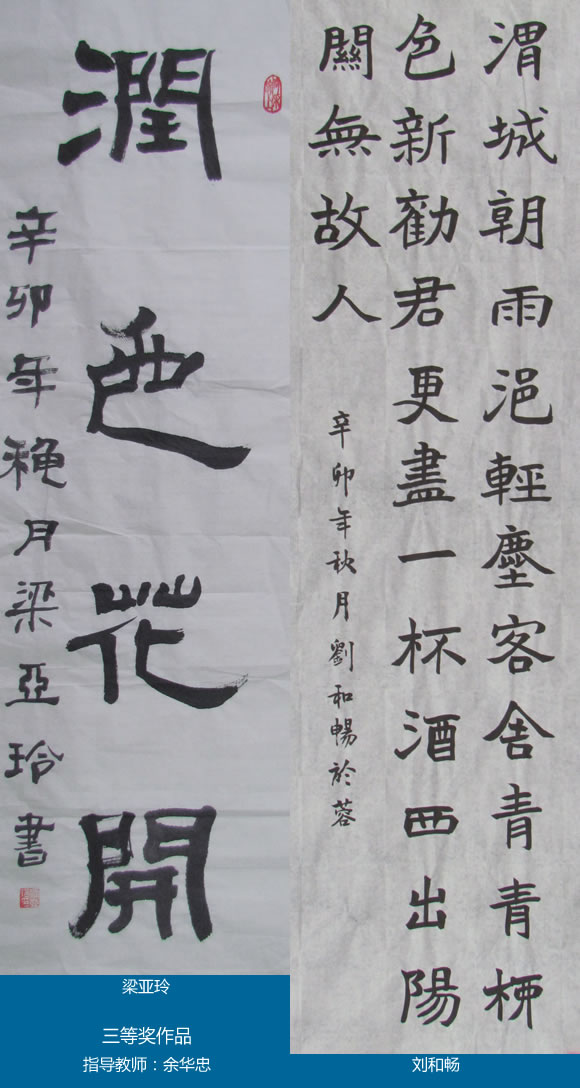 潤色花開
辛卯年穐月梁亞玲書
渭城朝雨浥輕塵客舍青青柳
色新勸君更盡一杯酒西出陽
關無故人
辛卯年秋月劉和暢於蓉
梁亚玲
三等奖作品
指导教师：余华忠
刘和畅